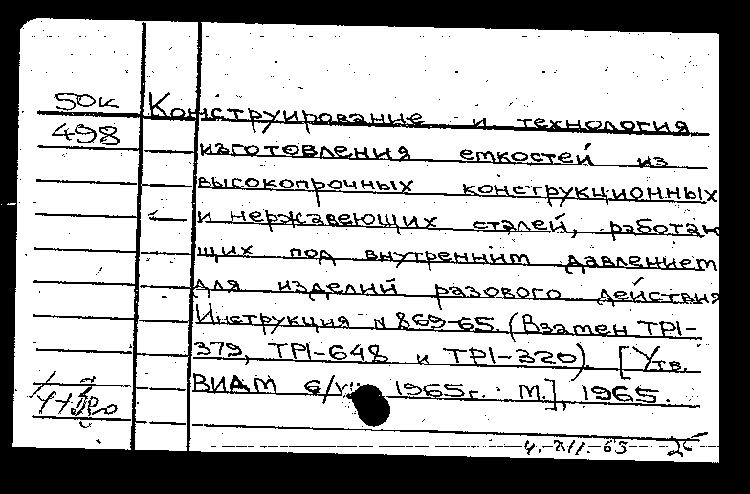 50к
498
Конструирование и технология
изготовления емкостей из
высокопрочных конструкционных
и нержавеющих сталей, работаю
щих под внутренним давлением
для изделий разового действия
Инструкция N 869-65. (Взамен ТРІ-
379, ТРІ-648 и ТРІ-320). [Утв.
ВИАМ 6/VII 1965г. М.], 1965.
4.-XII.-65 25